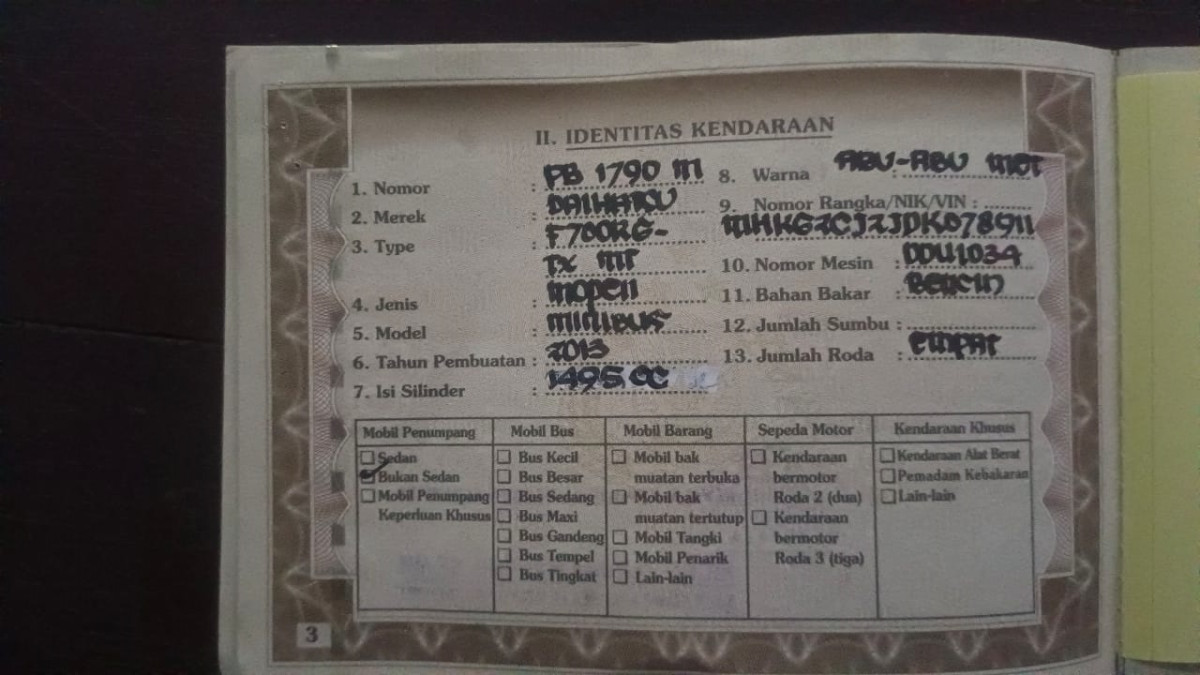 II. IDENTITAS KENDARAAN
1. Nomor : PB 1790 M
2. Merek : DAIHATSU
3. Type : F700RG-
TX MT
4. Jenis : MOPEN
5. Model : MINIBUS
6. Tahun Pembuatan : 2013
7. Isi Silinder : 1495 CC
8. Warna : ABU-ABU MET
9. Nomor Rangka/NIK/VIN :
MHKG2CJ2JDK078911
10. Nomor Mesin : DDU1034
11. Bahan Bakar : BENSIN
12. Jumlah Sumbu :
13. Jumlah Roda : EMPAT
Mobil Penumpang
Sedan
Bukan Sedan
Mobil Penumpang
Keperluan Khusus
Mobil Bus
Bus Kecil
Bus Besar
Bus Sedang
Bus Maxi
Bus Gandeng
Bus Tempel
Bus Tingkat
Mobil Barang
Mobil bak
muatan terbuka
Mobil bak
muatan tertutup
Mobil Tangki
Mobil Penarik
Lain-lain
Sepeda Motor
Kendaraan
bermotor
Roda 2 (dua)
Kendaraan
bermotor
Roda 3 (tiga)
Kendaraan Khusus
Kendaraan Alat Berat
Pemadam Kebakaran
Lain-lain
3